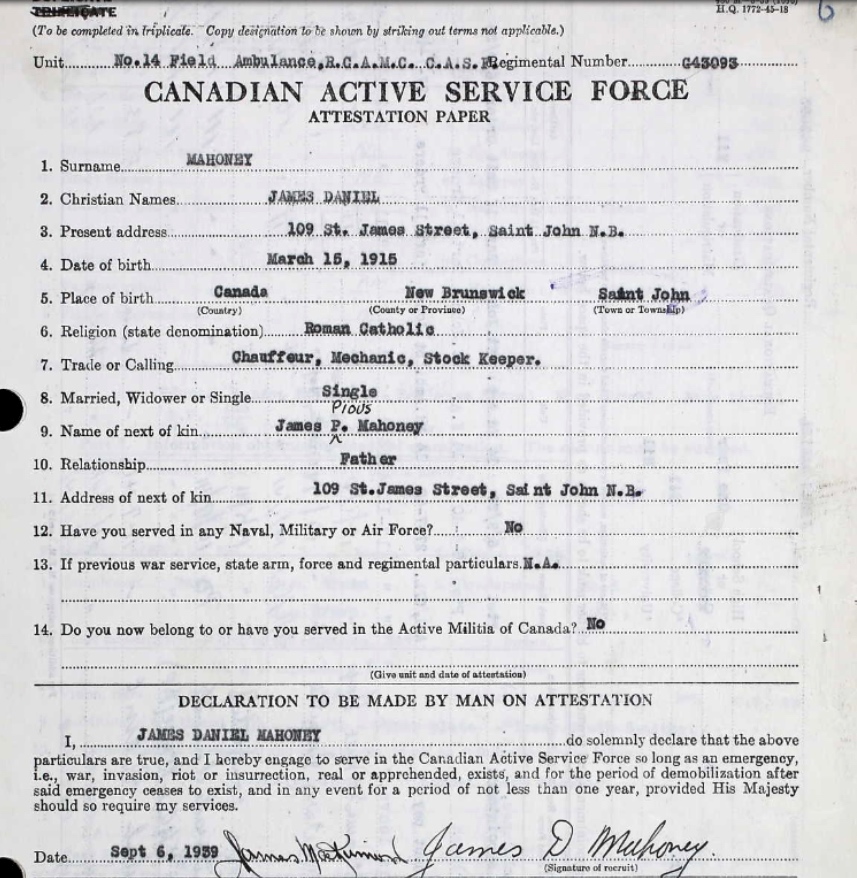 TRIPLICATE
H.Q. 1772-45-18
6
(To be completed in triplicate. Copy designation to be shown by striking out terms not applicable.)
Unit No.14 Field Ambulance, R.C.A.M.C. C.A.S.F. Regimental Number G43093
CANADIAN ACTIVE SERVICE FORCE
ATTESTATION PAPER
1. Surname MAHONEY
2. Christian Names JAMES DANIEL
3. Present address 109 St. James Street, Saint John N.B.
4. Date of birth March 15, 1915
5. Place of birth Canada New Brunswick Saint John
(Country) (County or Province) (Town or Township)
6. Religion (state denomination) Roman Catholic
7. Trade or Calling Chauffeur, Mechanic, Stock Keeper.
8. Married, Widower or Single Single
Pious
9. Name of next of kin James P. Mahoney
10. Relationship Father
11. Address of next of kin 109 St.James Street, Saint John N.B.
12. Have you served in any Naval, Military or Air Force? No
13. If previous war service, state arm, force and regimental particulars. N.A.
14. Do you now belong to or have you served in the Active Militia of Canada? No
(Give unit and date of attestation)
DECLARATION TO BE MADE BY MAN ON ATTESTATION
I, JAMES DANIEL MAHONEY do solemnly declare that the above
particulars are true, and I hereby engage to serve in the Canadian Active Service Force so long as an emergency,
i.e., war, invasion, riot or insurrection, real or apprehended, exists, and for the period of demobilization after
said emergency ceases to exist, and in any event for a period of not less than one year, provided His Majesty
should so require my services.
Date Sept 6, 1939 James D Mahoney.
(Signature of recruit)